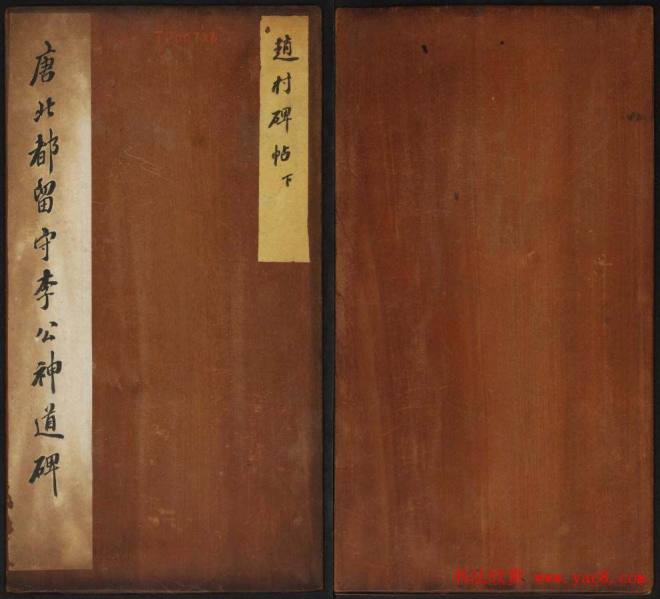 唐北都留守李公神道碑
趙村碑帖下
TP00738
书法欣赏 www.yac8.com